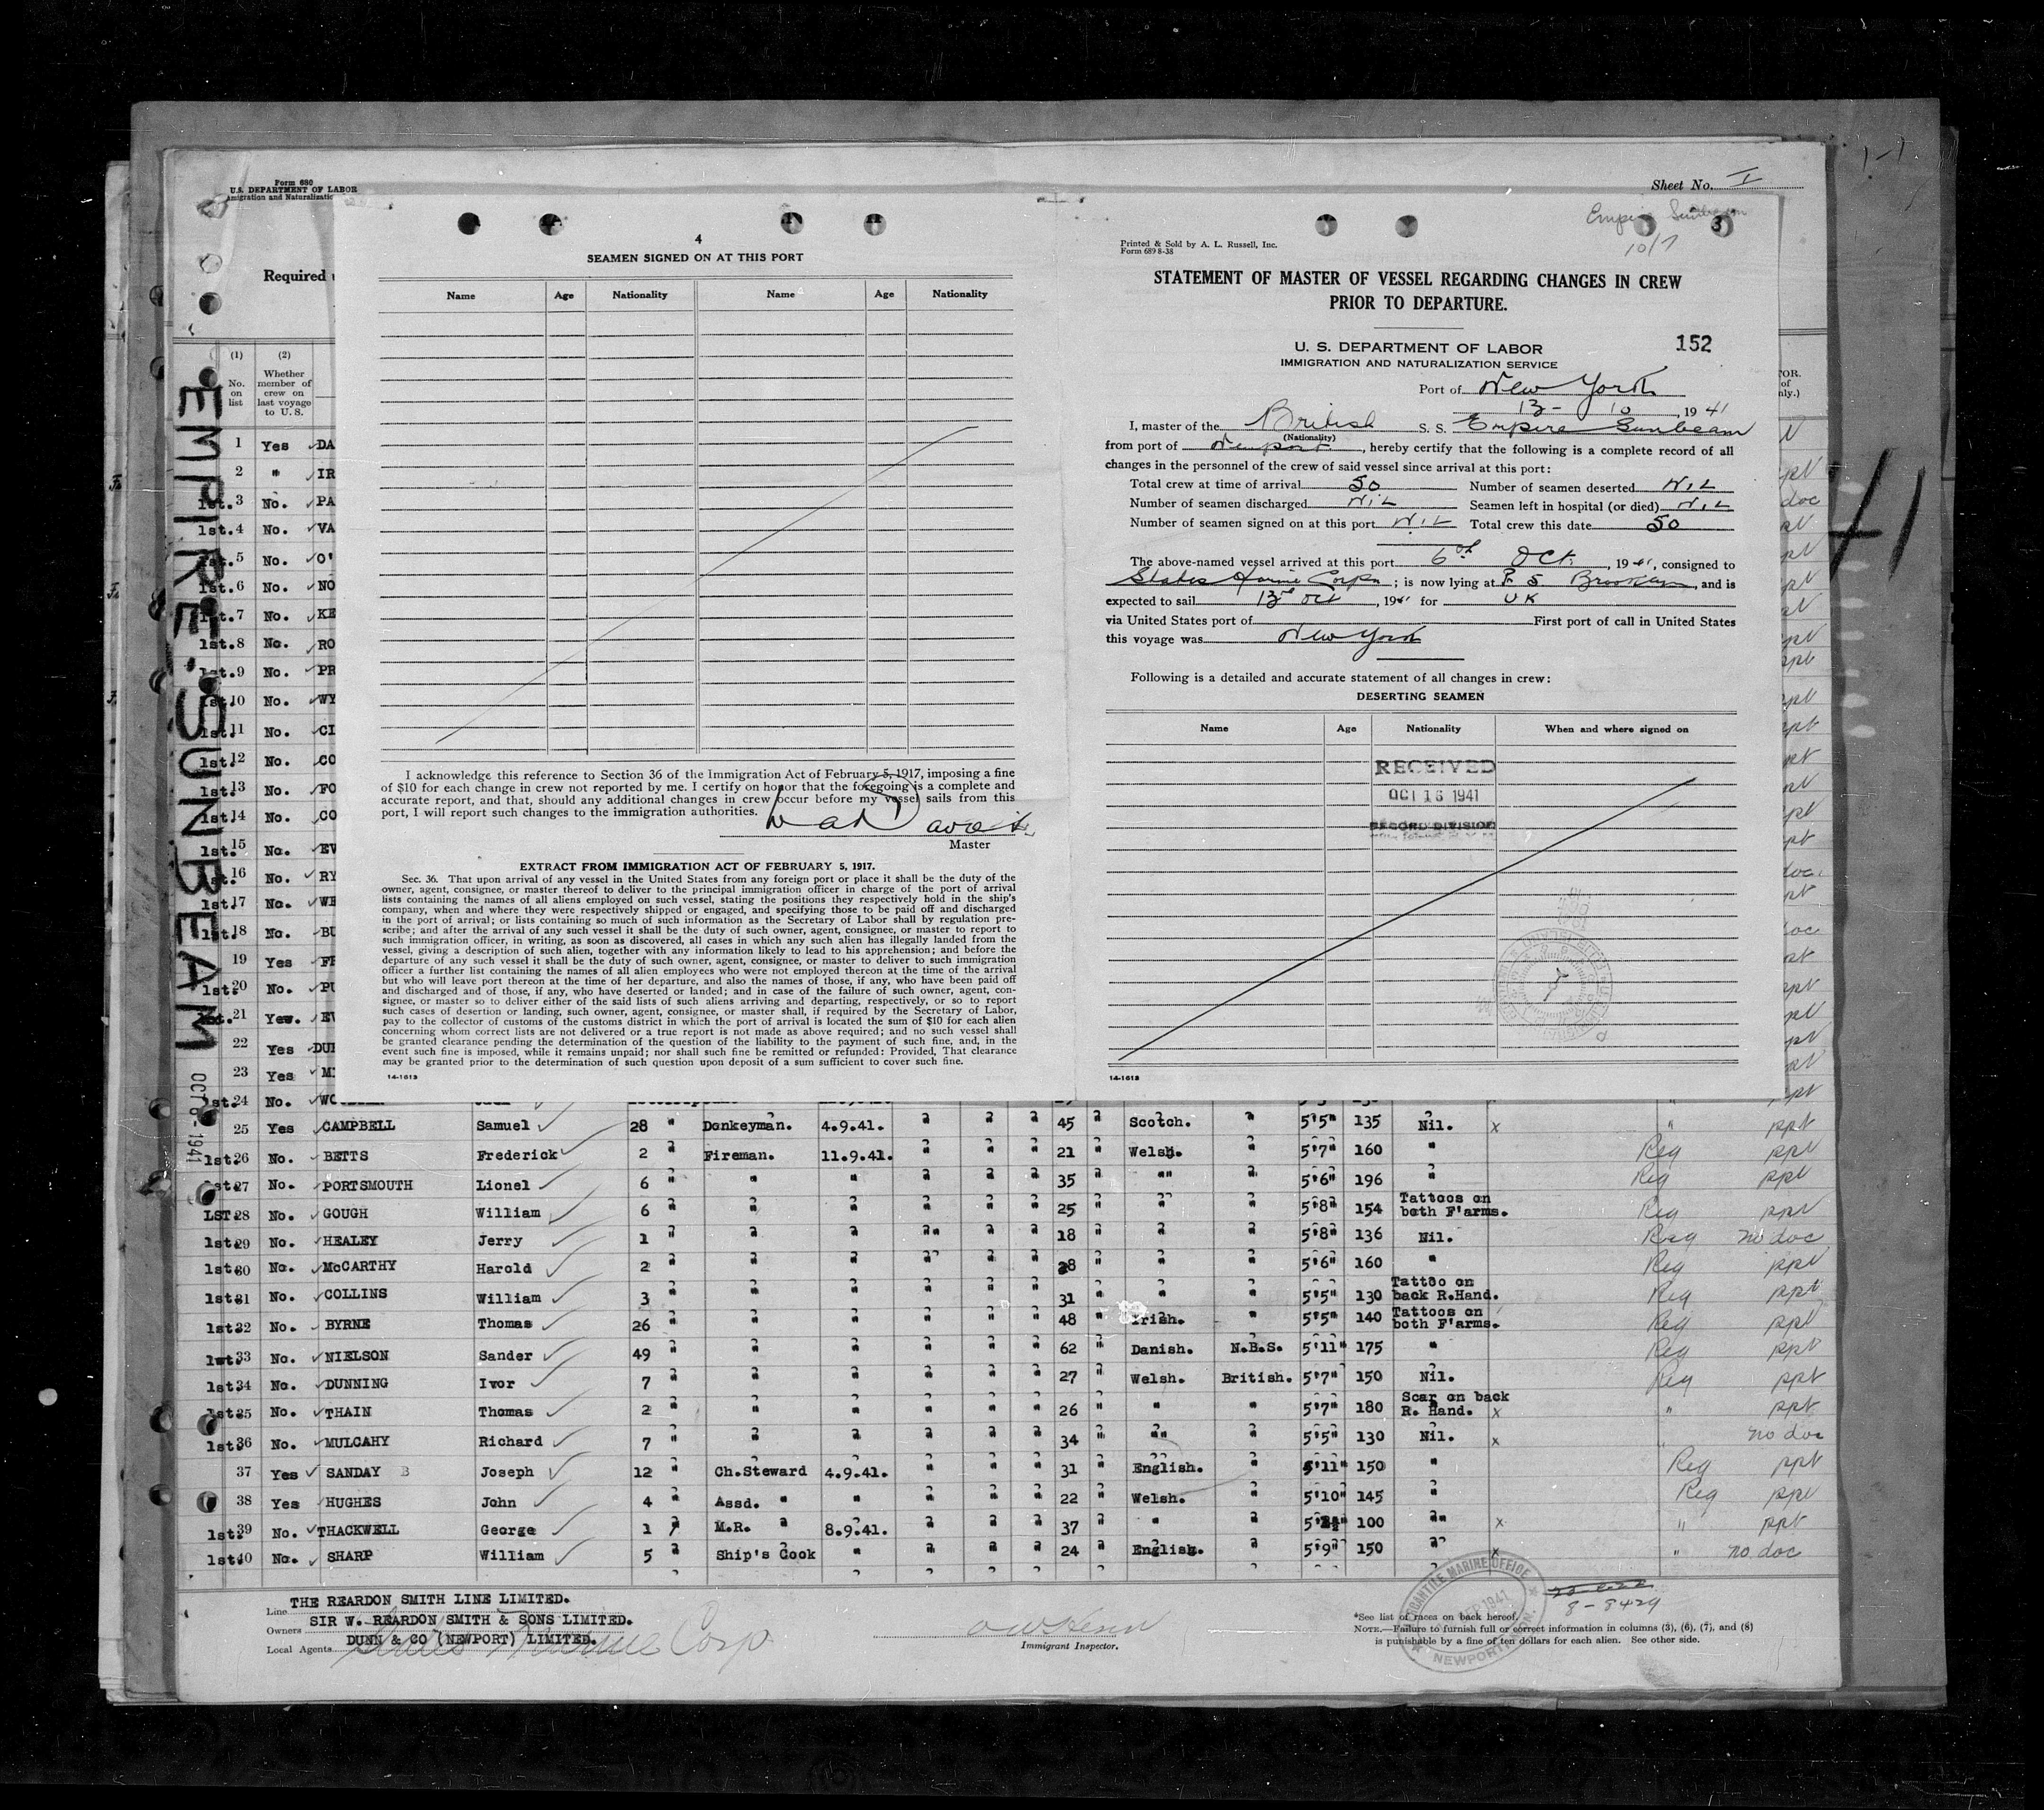 Form 680
U.S. DEPARTMENT OF LABOR
Sheet No. I
Required
(1)
No.
on
list
(2)
Whether
member of
crew on
last voyage
to U. S.
EMPIRE SUNBEAM
OCT 6-1941
1 Yes DA
2 " IR
1st. 3 No. PA
1st. 4 No. VA
1st. 5 No. O'
1st. 6 No. NO
1st. 7 No. KE
1st. 8 No. RO
1st. 9 No. PR
1st. 10 No. WY
1st. 11 No. CI
1st. 12 No. CO
1st. 13 No. FO
1st. 14 No. CO
1st. 15 No. EV
1st. 16 No. RY
1st. 17 No. WE
1st. 18 No. BU
19 Yes FR
1st. 20 No. PU
21 Yes. EV
22 Yes DU
23 Yes MI
1st. 24 No. WO
4
SEAMEN SIGNED ON AT THIS PORT
Name Age Nationality Name Age Nationality
I acknowledge this reference to Section 36 of the Immigration Act of February 5, 1917, imposing a fine
of $10 for each change in crew not reported by me. I certify on honor that the foregoing is a complete and
accurate report, and that, should any additional changes in crew occur before my vessel sails from this
port, I will report such changes to the immigration authorities.
Master
EXTRACT FROM IMMIGRATION ACT OF FEBRUARY 5, 1917.
Sec. 36. That upon arrival of any vessel in the United States from any foreign port or place it shall be the duty of the
owner, agent, consignee, or master thereof to deliver to the principal immigration officer in charge of the port of arrival
lists containing the names of all aliens employed on such vessel, stating the positions they respectively hold in the ship's
company, when and where they were respectively shipped or engaged, and specifying those to be paid off and discharged
in the port of arrival; or lists containing so much of such information as the Secretary of Labor shall by regulation pre-
scribe; and after the arrival of any such vessel it shall be the duty of such owner, agent, consignee, or master to report to
such immigration officer, in writing, as soon as discovered, all cases in which any such alien has illegally landed from the
vessel, giving a description of such alien, together with any information likely to lead to his apprehension; and before the
departure of any such vessel it shall be the duty of such owner, agent, consignee, or master to deliver to such immigration
officer a further list containing the names of all alien employees who were not employed thereon at the time of the arrival
but who will leave port thereon at the time of her departure, and also the names of those, if any, who have been paid off
and discharged and of those, if any, who have deserted or landed; and in case of the failure of such owner, agent, con-
signee, or master so to deliver either of the said lists of such aliens arriving and departing, respectively, or so to report
such cases of desertion or landing, such owner, agent, consignee, or master shall, if required by the Secretary of Labor,
pay to the collector of customs of the customs district in which the port of arrival is located the sum of $10 for each alien
concerning whom correct lists are not delivered or a true report is not made as above required; and no such vessel shall
be granted clearance pending the determination of the question of the liability to the payment of such fine, and, in the
event such fine is imposed, while it remains unpaid; nor shall such fine be remitted or refunded: Provided, That clearance
may be granted prior to the determination of such question upon deposit of a sum sufficient to cover such fine.
14-1613
Empire Sunbeam
10/7
3
Printed & Sold by A. L. Russell, Inc.
Form 689 8-38
STATEMENT OF MASTER OF VESSEL REGARDING CHANGES IN CREW
PRIOR TO DEPARTURE.
U. S. DEPARTMENT OF LABOR
152
IMMIGRATION AND NATURALIZATION SERVICE
Port of New York
13 - 10, 1941
I, master of the British S. S. Empire Sunbeam
(Nationality)
from port of Newport, hereby certify that the following is a complete record of all
changes in the personnel of the crew of said vessel since arrival at this port:
Total crew at time of arrival 50 Number of seamen deserted NIL
Number of seamen discharged NIL Seamen left in hospital (or died) NIL
Number of seamen signed on at this port NIL Total crew this date 50
The above-named vessel arrived at this port 6th Oct., 1941, consigned to
States Marine Corpn; is now lying at P. 5 Brooklyn, and is
expected to sail 13th Oct, 1941 for UK
via United States port of First port of call in United States
this voyage was New York
Following is a detailed and accurate statement of all changes in crew:
DESERTING SEAMEN
Name Age Nationality When and where signed on
RECEIVED
OCT 16 1941
RECORD DIVISION
14-1613
41
25 Yes CAMPBELL Samuel 28 " Donkeyman. 4.9.41. " " " 45 " Scotch. " 5'5" 135 Nil. x " ppt
1st. 26 No. BETTS Frederick 2 " Fireman. 11.9.41. " " " 21 " Welsh. " 5'7" 160 " Reg ppt
1st. 27 No. PORTSMOUTH Lionel 6 " " " " " " 35 " " " 5'6" 196 " Reg ppt
1ST. 28 No. GOUGH William 6 " " " " " " 25 " " " 5'8" 154 Tattoos on both F'arms. Reg ppt
1st. 29 No. HEALEY Jerry 1 " " " " " " 18 " " " 5'8" 136 Nil. Reg no doc
1st. 30 No. McCARTHY Harold 2 " " " " " " 28 " " " 5'6" 160 " Reg ppt
1st. 31 No. COLLINS William 3 " " " " " " 31 " " " 5'5" 130 Tattoo on back R.Hand. Reg ppt
1st. 32 No. BYRNE Thomas 26 " " " " " " 48 " Irish. " 5'5" 140 Tattoos on both F'arms. Reg ppt
1st. 33 No. NIELSON Sander 49 " " " " " " 62 " Danish. N.B.S. 5'11" 175 " Reg ppt
1st. 34 No. DUNNING Ivor 7 " " " " " " 27 " Welsh. British. 5'7" 150 Nil. Reg ppt
1st. 35 No. THAIN Thomas 2 " " " " " " 26 " " " 5'7" 180 Scar on back R. Hand. x " ppt
1st. 36 No. MULCAHY Richard 7 " " " " " " 34 " " " 5'5" 130 Nil. x " no doc
37 Yes SANDAY Joseph 12 " Ch.Steward 4.9.41. " " " 31 " English. " 5'11" 150 " Reg ppt
38 Yes HUGHES John 4 " Assd. " " " " " 22 " Welsh. " 5'10" 145 " Reg ppt
1st. 39 No. THACKWELL George 1 " M.R. " 8.9.41. " " " 37 " " " 100 " x " ppt
1st. 40 No. SHARP William 5 " Ship's Cook " " " " 24 " English. " 5'9" 150 " x " no doc
Line THE REARDON SMITH LINE LIMITED.
Owners SIR W. REARDON SMITH & SONS LIMITED.
Local Agents DUNN & CO (NEWPORT) LIMITED.
States Marine Corp
Immigrant Inspector.
MERCANTILE MARINE OFFICE
NEWPORT, MON.
8-8429
*See list of races on back hereof.
NOTE.—Failure to furnish full or correct information in columns (3), (6), (7), and (8)
is punishable by a fine of ten dollars for each alien. See other side.